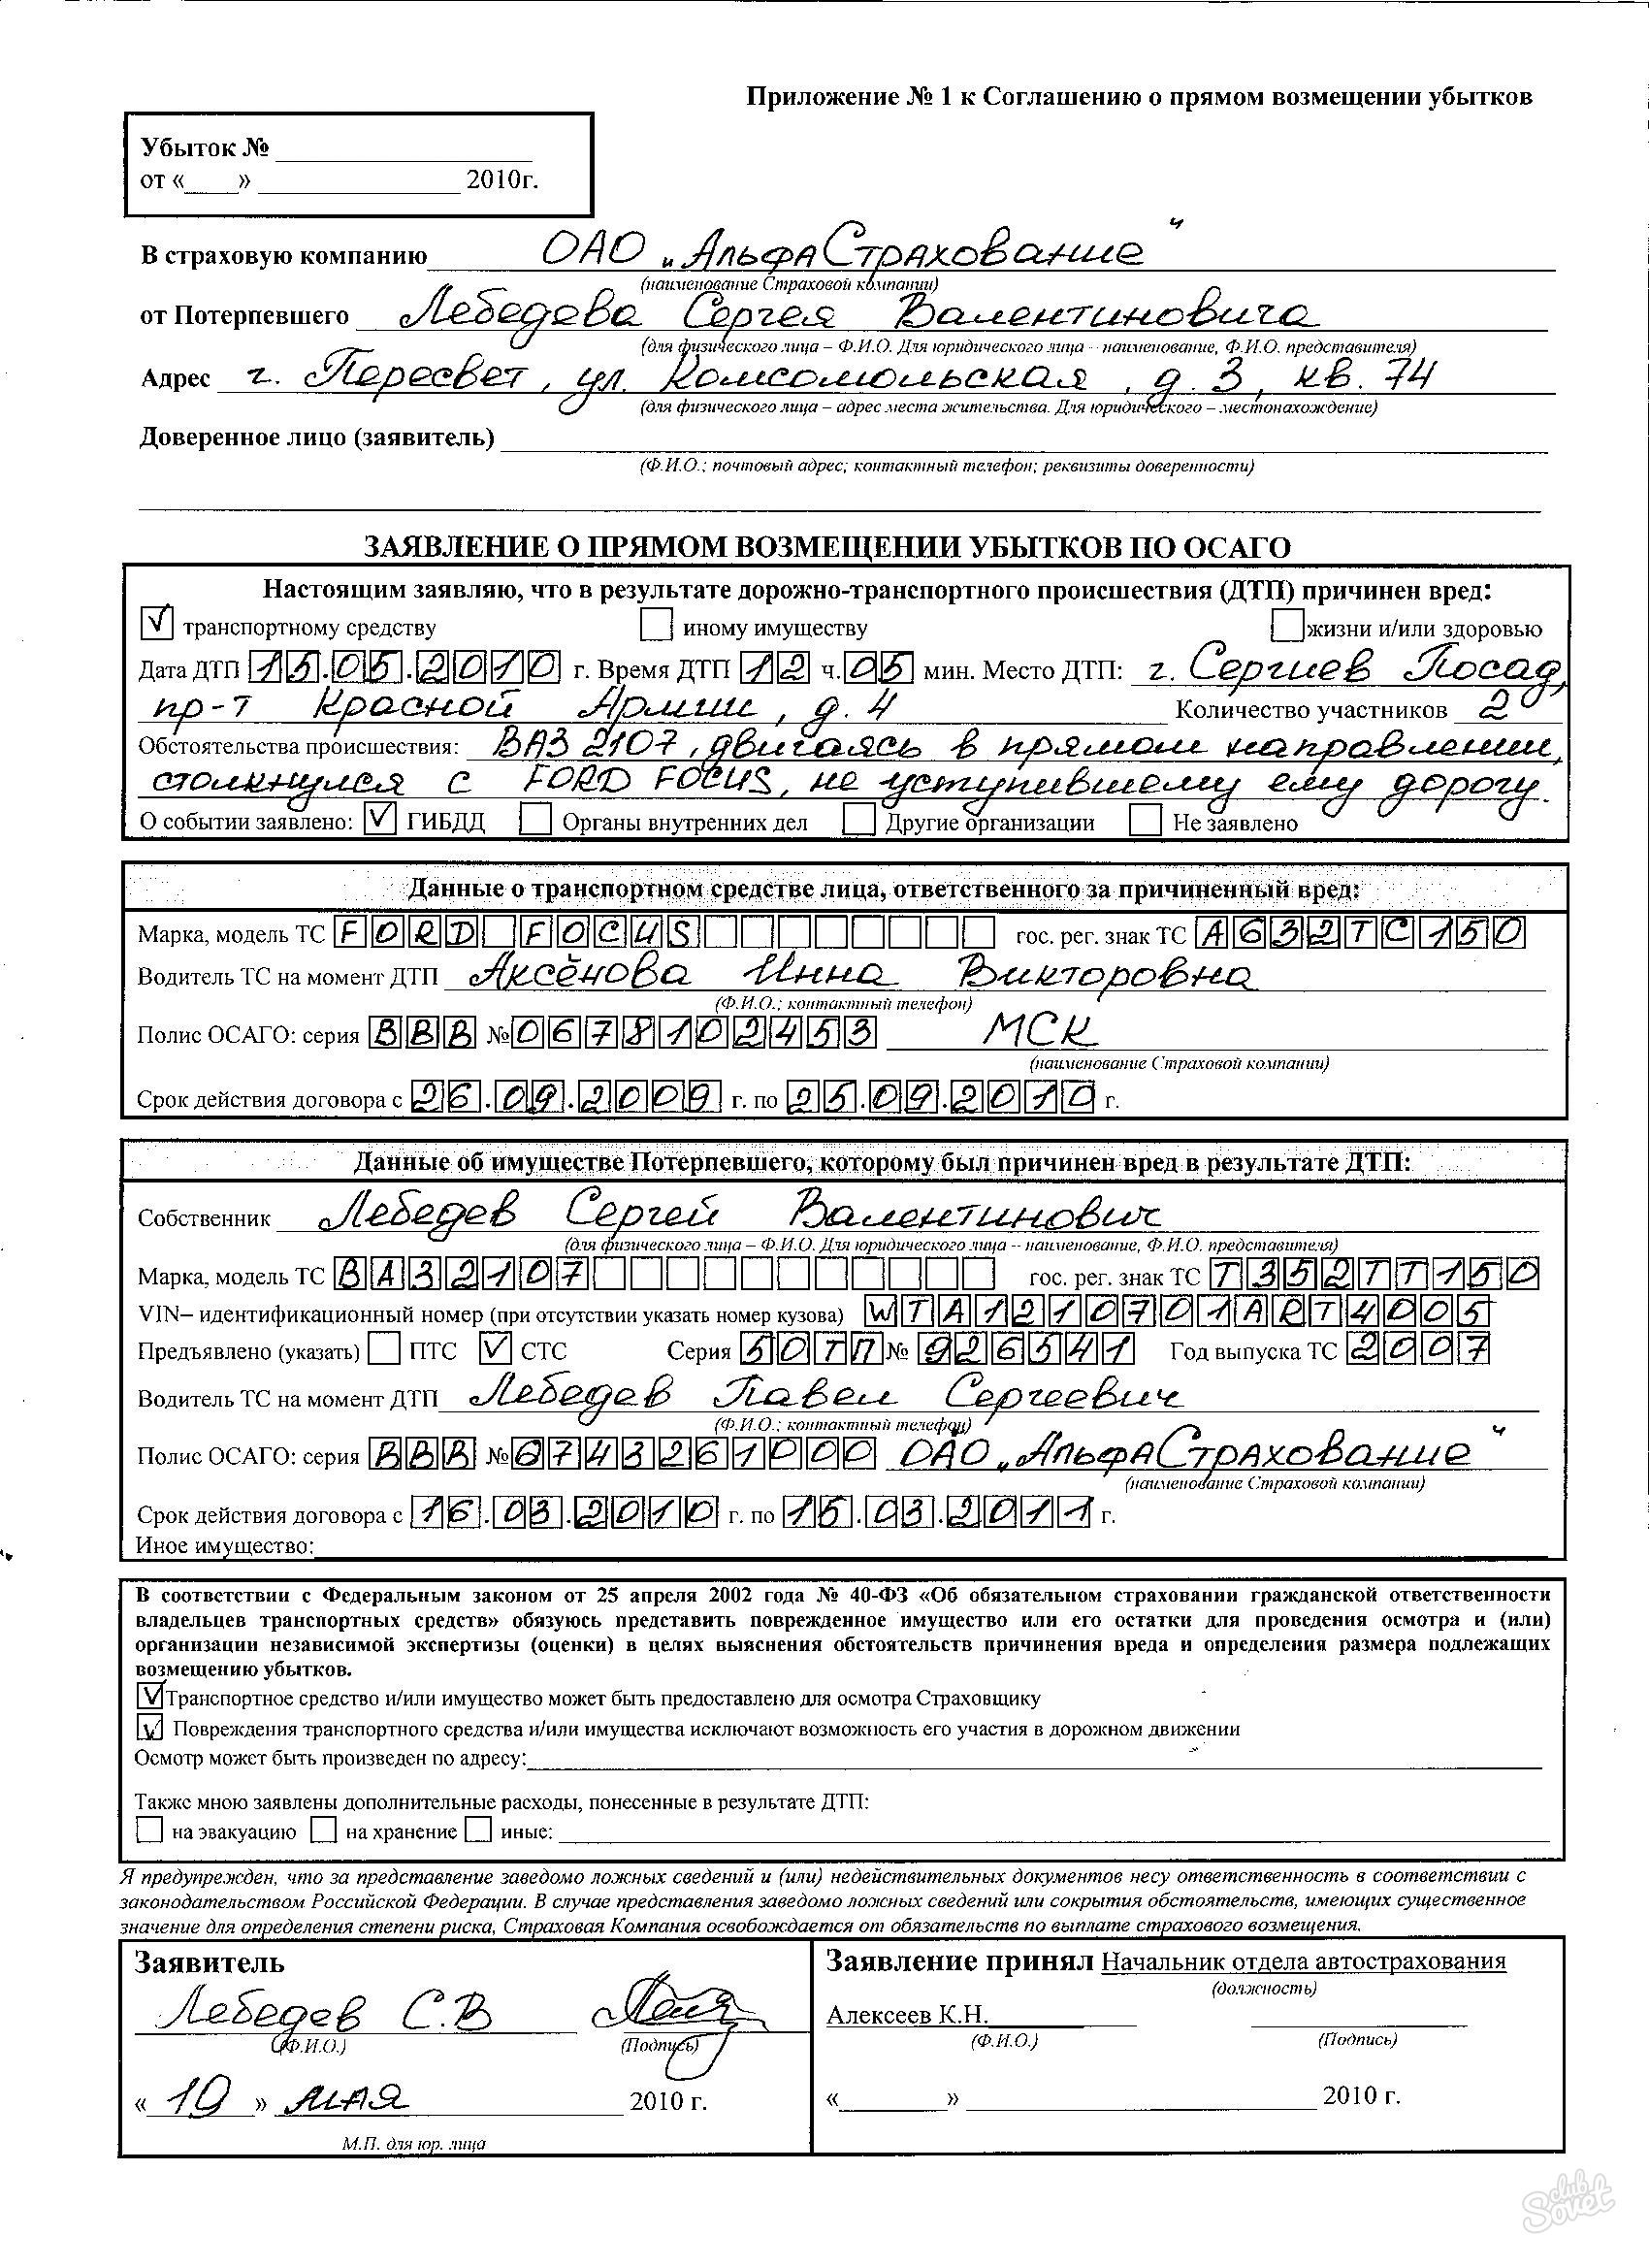 Приложение № 1 к Соглашению о прямом возмещении убытков
Убыток № ____________
от «____» ____________ 2010г.
В страховую компанию ОАО „АльфаСтрахование“
(наименование Страховой компании)
от Потерпевшего Лебедева Сергея Валентиновича
(для физического лица – Ф.И.О. Для юридического лица – наименование, Ф.И.О. представителя)
Адрес г. Пересвет, ул. Комсомольская, д. 3, кв. 74
(для физического лица – адрес места жительства. Для юридического – местонахождение)
Доверенное лицо (заявитель)
(Ф.И.О.; почтовый адрес; контактный телефон; реквизиты доверенности)
ЗАЯВЛЕНИЕ О ПРЯМОМ ВОЗМЕЩЕНИИ УБЫТКОВ ПО ОСАГО
Настоящим заявляю, что в результате дорожно-транспортного происшествия (ДТП) причинен вред:
V транспортному средству иному имуществу жизни и/или здоровью
Дата ДТП 15.05.2010 г. Время ДТП 12 ч. 05 мин. Место ДТП: г. Сергиев Посад,
пр-т Красной Армии, д. 4 Количество участников 2
Обстоятельства происшествия: ВАЗ 2107, двигаясь в прямом направлении,
столкнулся с FORD FOCUS, не уступившему ему дорогу.
О событии заявлено: V ГИБДД Органы внутренних дел Другие организации Не заявлено
Данные о транспортном средстве лица, ответственного за причиненный вред:
Марка, модель ТС FORD FOCUS гос. рег. знак ТС А632ТС150
Водитель ТС на момент ДТП Аксёнова Инна Викторовна
(Ф.И.О.; контактный телефон)
Полис ОСАГО: серия ВВВ №0678102453 МСК
(наименование Страховой компании)
Срок действия договора с 26.09.2009 г. по 25.09.2010 г.
Данные об имуществе Потерпевшего, которому был причинен вред в результате ДТП:
Собственник Лебедев Сергей Валентинович
(для физического лица – Ф.И.О. Для юридического лица – наименование, Ф.И.О. представителя)
Марка, модель ТС ВАЗ2107 гос. рег. знак ТС Т352ТТ150
VIN– идентификационный номер (при отсутствии указать номер кузова) WTA1210701ART4005
Предъявлено (указать) ПТС V СТС Серия 50ТП № 926541 Год выпуска ТС 2007
Водитель ТС на момент ДТП Лебедев Павел Сергеевич
(Ф.И.О.; контактный телефон)
Полис ОСАГО: серия ВВВ №0743261000 ОАО „АльфаСтрахование“
(наименование Страховой компании)
Срок действия договора с 16.03.2010 г. по 15.03.2011 г.
Иное имущество:
В соответствии с Федеральным законом от 25 апреля 2002 года № 40-ФЗ «Об обязательном страховании гражданской ответственности
владельцев транспортных средств» обязуюсь представить поврежденное имущество или его остатки для проведения осмотра и (или)
организации независимой экспертизы (оценки) в целях выяснения обстоятельств причинения вреда и определения размера подлежащих
возмещению убытков.
V Транспортное средство и/или имущество может быть предоставлено для осмотра Страховщику
V Повреждения транспортного средства и/или имущества исключают возможность его участия в дорожном движении
Осмотр может быть произведен по адресу:
Также мною заявлены дополнительные расходы, понесенные в результате ДТП:
на эвакуацию на хранение иные:
Я предупрежден, что за представление заведомо ложных сведений и (или) недействительных документов несу ответственность в соответствии с
законодательством Российской Федерации. В случае представления заведомо ложных сведений или сокрытия обстоятельств, имеющих существенное
значение для определения степени риска, Страховая Компания освобождается от обязательств по выплате страхового возмещения.
Заявитель
Лебедев С.В
(Ф.И.О.) (Подпись)
«19» мая 2010 г.
М.П. для юр. лица
Заявление принял Начальник отдела автострахования
(должность)
Алексеев К.Н.
(Ф.И.О.) (Подпись)
«____» ____________ 2010 г.
club
Sovet